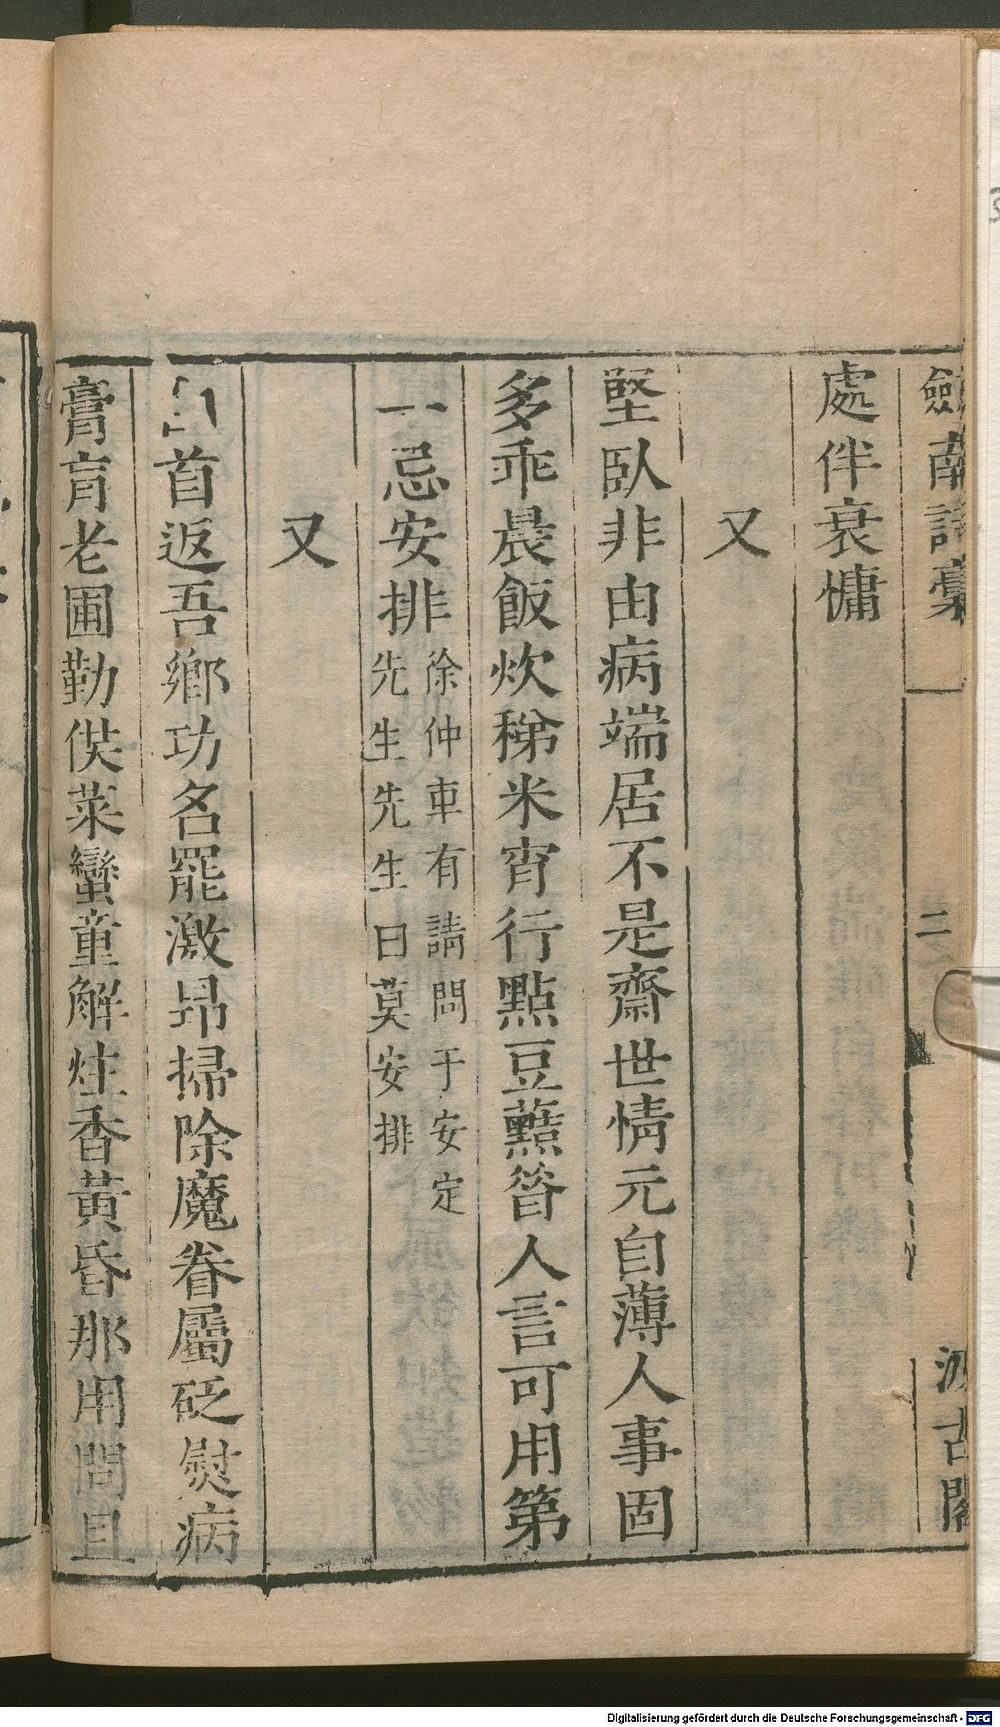 劍南詩稾
二
汲古閣
處伴衰慵
又
堅臥非由病端居不是齋世情元自薄人事固
多乖晨飯炊稊米宵行點豆䕸昝人言可用第
一忌安排
徐仲車有請問于安定
先生先生曰莫安排
又
首返吾鄉功名罷激昻掃除魔眷屬砭慰病
膏肓老圃勤供菜蠻童解炷香黃昏那用問且
Digitalisierung gefördert durch die Deutsche Forschungsgemeinschaft - DFG